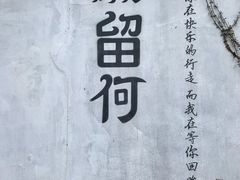 留何
在快乐的行走 而我在等你回